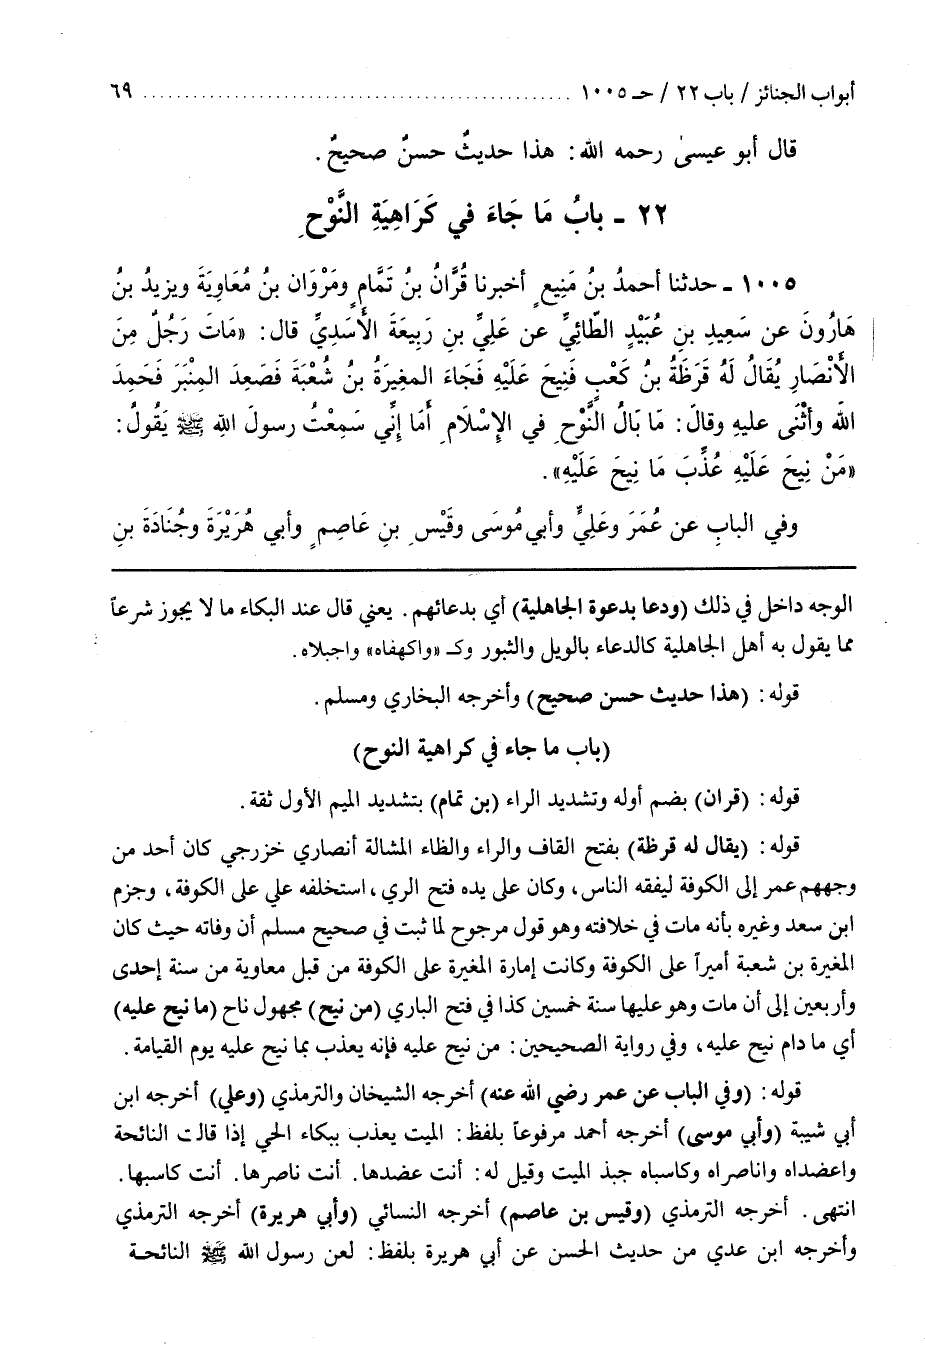 أبواب الجنائز / باب ٢٢ / حـ ١٠٠٥ ........................................................ ٦٩
قال أبو عيسىٰ رحمه الله: هذا حديثٌ حسنٌ صحيحٌ.
٢٢ - بابُ مَا جَاءَ في كَرَاهِيَةِ النَّوْحِ
١٠٠٥ - حدثنا أحمدُ بنُ مَنِيعٍ أخبرنا قُرَّانُ بنُ تَمَّامٍ ومَرْوَان بنُ مُعَاوِيَةَ ويزيدُ بنُ
هَارُونَ عن سَعِيدِ بنِ عُبَيْدٍ الطّائِيِّ عن عَلِيِّ بنِ رَبِيعَةَ الأَسَدِيِّ قال: «مَاتَ رَجُلٌ مِنَ
الأَنْصَارِ يُقَالُ لَهُ قَرَظَةُ بنُ كَعْبٍ فَنِيحَ عَلَيْهِ فَجَاءَ المغِيرَةُ بنُ شُعْبَةَ فَصَعِدَ المِنْبَرَ فَحَمِدَ
اللهَ وأَثْنَى عليهِ وقالَ: مَا بَالُ النَّوْحِ في الإسْلَامِ أَمَا إنِّي سَمِعْتُ رسولَ اللهِ ﷺ يَقُولُ:
«مَنْ نِيحَ عَلَيْهِ عُذِّبَ مَا نِيحَ عَلَيْهِ».
وفي البابِ عن عُمَرَ وعَلِيٍّ وأبي مُوسَى وقَيْسِ بنِ عَاصِمٍ وأبي هُرَيْرَةَ وجُنَادَةَ بنِ
الوجه داخل في ذلك (ودعا بدعوة الجاهلية) أي بدعائهم. يعني قال عند البكاء ما لا يجوز شرعاً
مما يقول به أهل الجاهلية كالدعاء بالويل والثبور وكـ «واكهفاه» واجبلاه.
قوله: (هذا حديث حسن صحيح) وأخرجه البخاري ومسلم.
(باب ما جاء في كراهية النوح)
قوله: (قران) بضم أوله وتشديد الراء (بن تمام) بتشديد الميم الأول ثقة.
قوله: (يقال له قرظة) بفتح القاف والراء والظاء المشالة أنصاري خزرجي كان أحد من
وجههم عمر إلى الكوفة ليفقه الناس، وكان على يده فتح الري، استخلفه علي على الكوفة، وجزم
ابن سعد وغيره بأنه مات في خلافته وهو قول مرجوح لما ثبت في صحيح مسلم أن وفاته حيث كان
المغيرة بن شعبة أميراً على الكوفة وكانت إمارة المغيرة على الكوفة من قبل معاوية من سنة إحدى
وأربعين إلى أن مات وهو عليها سنة خمسين كذا في فتح الباري (من نيح) مجهول ناح (ما نيح عليه)
أي ما دام نيح عليه، وفي رواية الصحيحين: من نيح عليه فإنه يعذب بما نيح عليه يوم القيامة.
قوله: (وفي الباب عن عمر رضي الله عنه) أخرجه الشيخان والترمذي (وعلي) أخرجه ابن
أبي شيبة (وأبي موسى) أخرجه أحمد مرفوعاً بلفظ: الميت يعذب ببكاء الحي إذا قالت النائحة
واعضداه واناصراه وكاسباه جبذ الميت وقيل له: أنت عضدها. أنت ناصرها. أنت كاسبها.
انتهى. أخرجه الترمذي (وقيس بن عاصم) أخرجه النسائي (وأبي هريرة) أخرجه الترمذي
وأخرجه ابن عدي من حديث الحسن عن أبي هريرة بلفظ: لعن رسول الله ﷺ النائحة